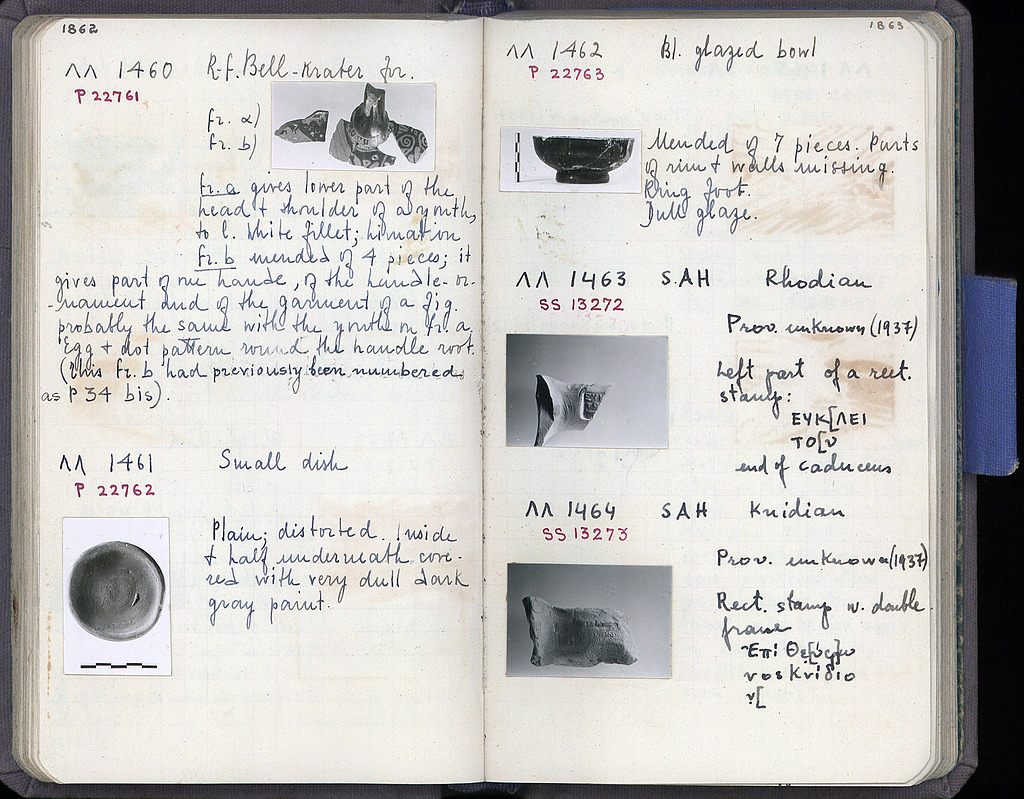 1862
ΛΛ 1460 R.f. Bell-Krater fr.
P 22761
fr. a)
fr. b)
fr. a gives lower part of the
head + shoulder of a youth,
to l. White fillet; himation
fr. b mended of 4 pieces; it
gives part of one handle, of the handle-or-
-nament and of the garment of a fig.
probably the same with the youth on fr. a.
Egg + dot pattern round the handle root.
(This fr. b had previously been numbered
as P 34 bis).
ΛΛ 1461 Small dish
P 22762
Plain; distorted. Inside
+ half underneath cove-
red with very dull dark
gray paint.
1863
ΛΛ 1462 Bl. glazed bowl
P 22763
Mended of 7 pieces. Parts
of rim + walls missing.
Ring foot.
Dull glaze.
ΛΛ 1463 SAH Rhodian
SS 13272
Prov. unknown (1937)
Left part of a rect.
stamp:
ΕΥΚ[ΛΕΙ
ΤΟ[υ
end of caduceus
ΛΛ 1464 SAH Knidian
SS 13273
Prov. unknown (1937)
Rect. stamp w. double
frame
Ἐπὶ Θε[υδ
νος Κνίδιο
ν[